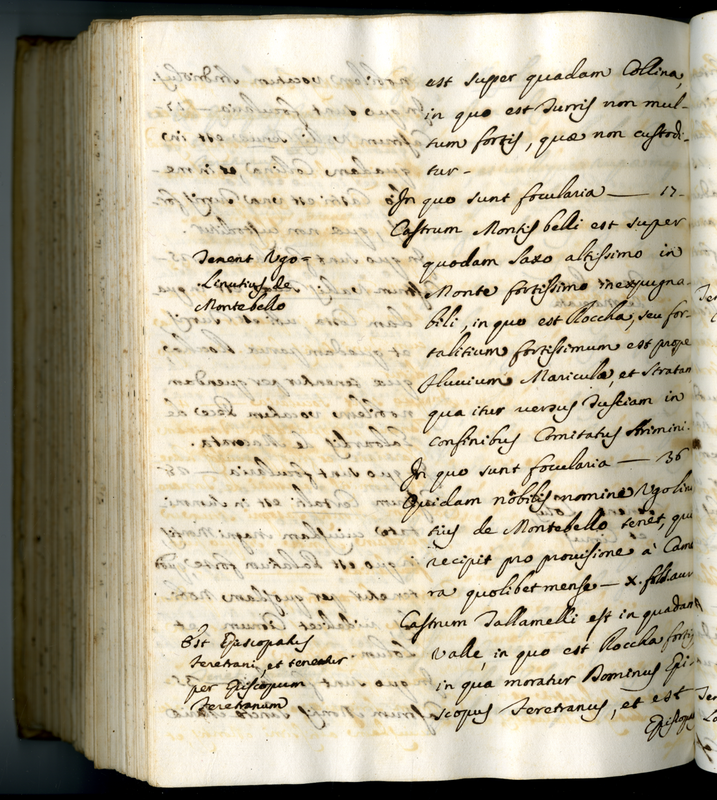 est super quadam Collina,
in quo est Turris non mul-
tum fortis, quæ non custodi-
tur-
In quo sunt focularia — 17-
Castrum Montis belli est super
quodam saxo altissimo in
Monte fortissimo inexpugna-
bili, in quo est Roccha, seu for-
talitium fortissimum est prope
fluvium Mariculæ, et stratam
qua itur versus Tustiam in
confinibus Comitatus Arimini.
In quo sunt focularia — 36
Quidam nobilis nomine Ugolinu
tius de Montebello tenet, qui
recipit pro provisione à Came
ra quolibet mense — X. aur
Castrum Tallamelli est in quadam
Valle, in quo est Roccha fortis
in qua moratur Dominus Epi-
scopus Feretranus, et est
Episcopus
Tenent Ugo=
Linutius de
Montebello
Est Episcopatus
Feretrani, et tenentur
per Episcopum
Feretranum